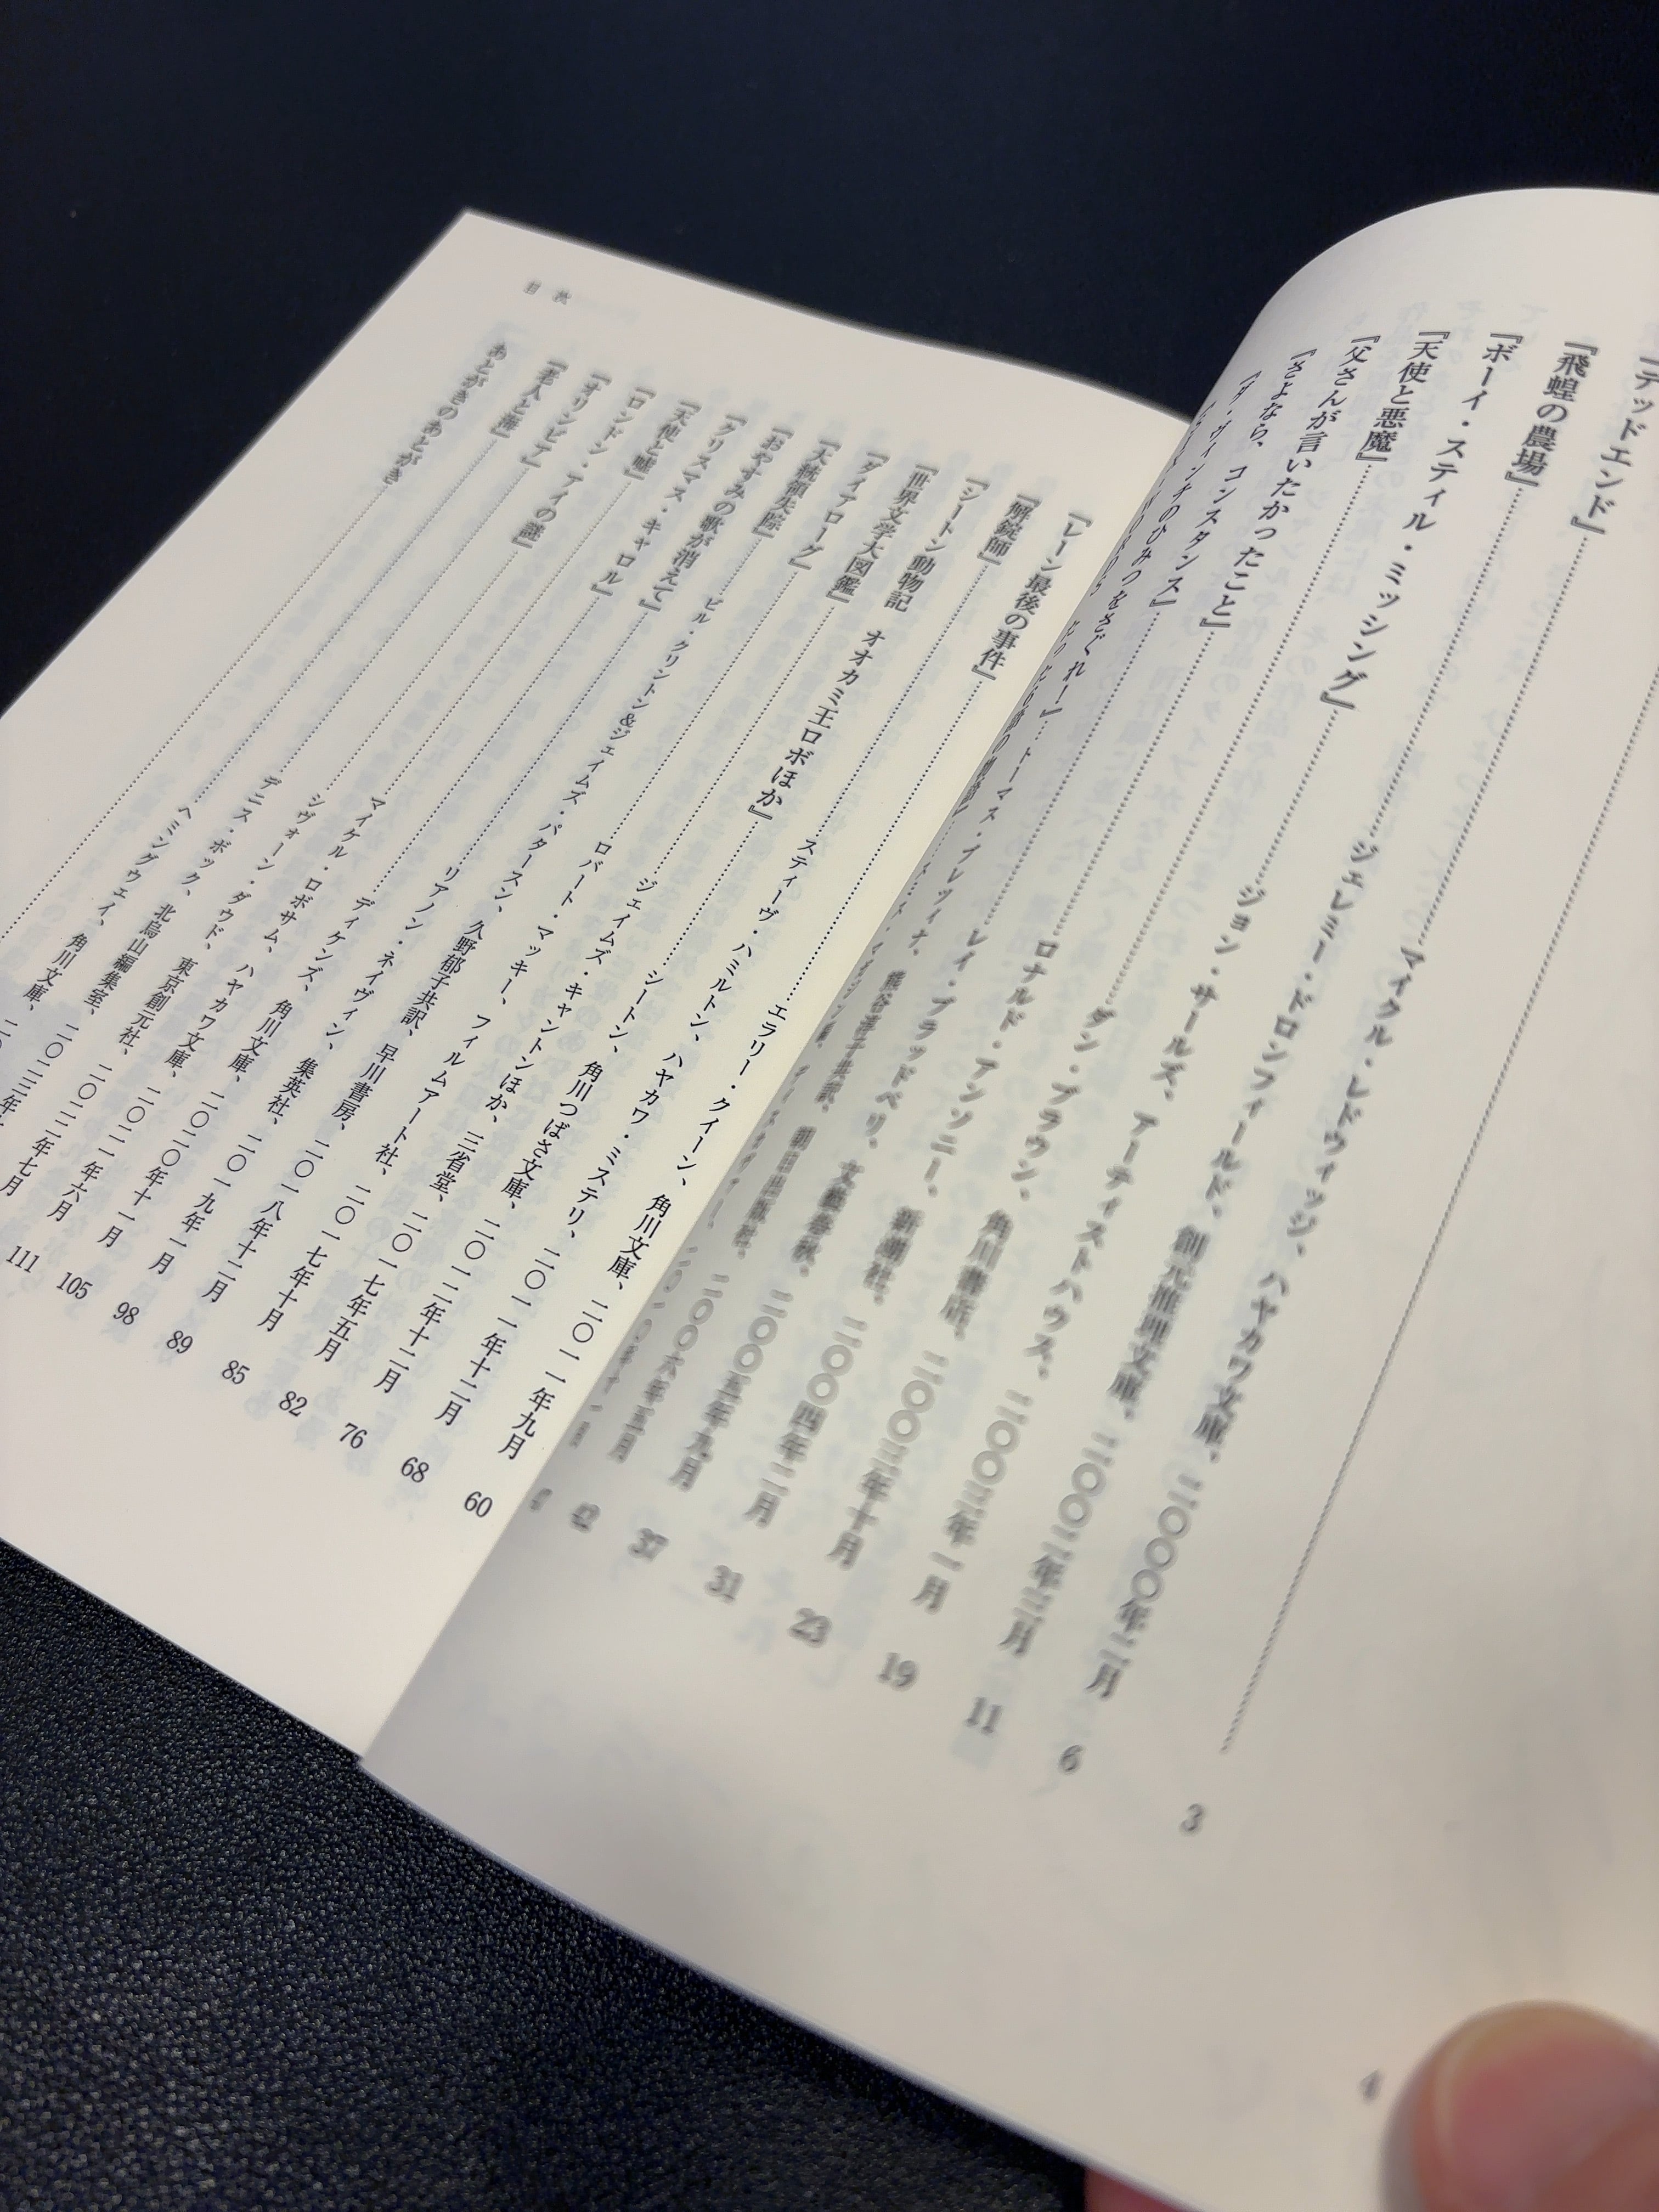 ……3
『デッドエンド』……マイクル・レドウィッジ、ハヤカワ文庫、二〇〇〇年二月 6
『飛蝗の農場』……ジェレミー・ドロンフィールド、創元推理文庫、二〇〇二年三月 11
『ボーイ・スティル・ミッシング』……ジョン・サールズ、アーティストハウス、二〇〇三年一月 19
『天使と悪魔』……ダン・ブラウン、角川書店、二〇〇三年十月 23
『父さんが言いたかったこと』……ロナルド・アンソニー、新潮社、二〇〇四年二月 31
『さよなら、コンスタンス』……レイ・ブラッドベリ、文藝春秋、二〇〇五年九月 37
『ダ・ヴィンチのひみつをさぐれ!』……トーマス・ブレツィナ、共訳、朝日出版社、二〇〇六年五月 42
『レーン最後の事件』……エラリー・クイーン、角川文庫、二〇一一年九月 60
『解錠師』……スティーヴ・ハミルトン、ハヤカワ・ミステリ、二〇一一年十二月 68
『シートン動物記 オオカミ王ロボほか』……シートン、角川つばさ文庫、二〇一二年十二月 76
『世界文学大図鑑』……ジェイムズ・キャントンほか、三省堂、二〇一七年五月 82
『ダイアローグ』……ロバート・マッキー、フィルムアート社、二〇一七年十月 85
『大統領失踪』……ビル・クリントン&ジェイムズ・パタースン、久野郁子共訳、早川書房、二〇一八年十二月 89
『おやすみの歌が消えて』……リアノン・ネイヴィン、集英社、二〇一九年一月 98
『クリスマス・キャロル』……ディケンズ、角川文庫、二〇二〇年十一月 105
『天使と嘘』……マイケル・ロボサム、ハヤカワ文庫、二〇二一年六月 111
『ロンドン・アイの謎』……シヴォーン・ダウド、東京創元社、二〇二二年七月
『オリンピア』……デニス・ボック、北烏山編集室、二〇二三年
『老人と海』……ヘミングウェイ、角川文庫、二〇
あとがきのあとがき……
目次
4